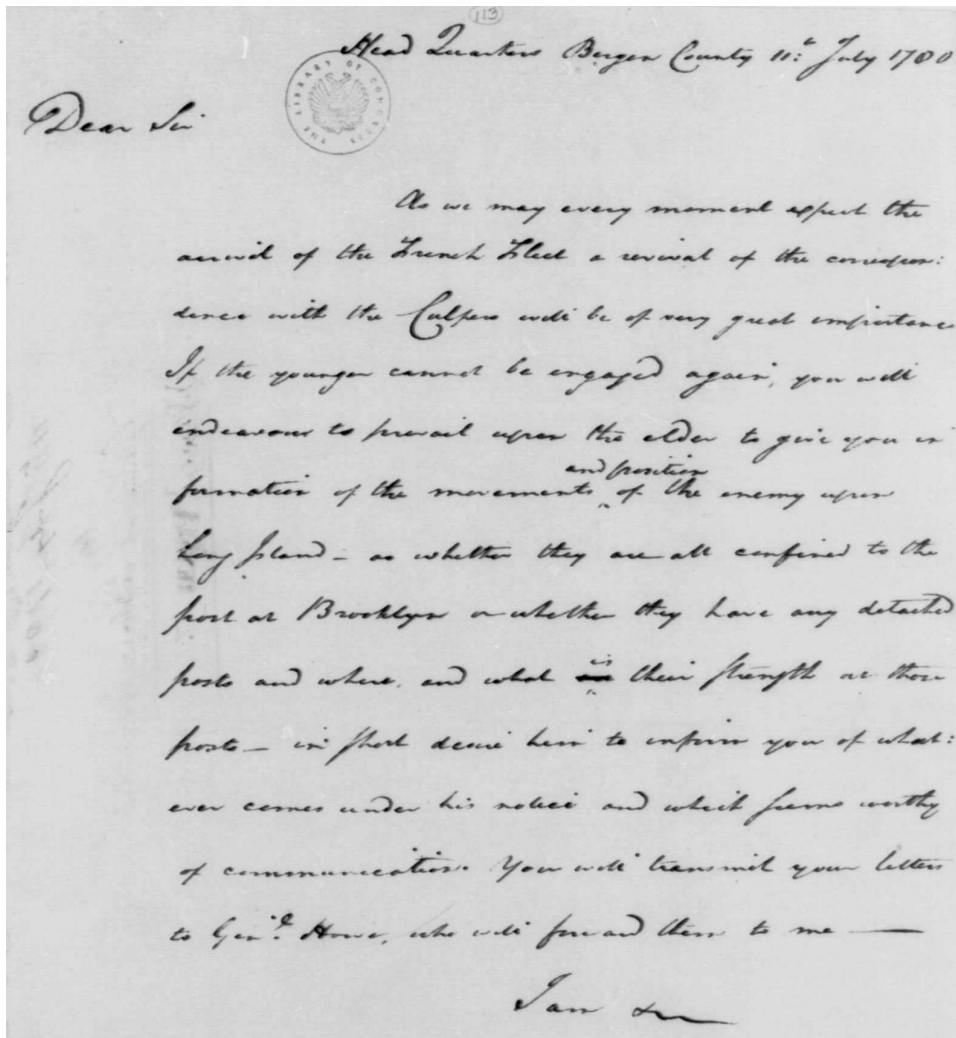 113
Head Quarters Bergen County 11.th July 1780
THE LIBRARY OF CONGRESS
Dear Sir
As we may every moment expect the
arrival of the French Fleet a revival of the correspon:
dence with the Culpers will be of very great importance
If the younger cannot be engaged again, you will
endeavour to prevail upon the elder to give you in
and position
formation of the movements ^ of the enemy upon
Long Island – as whether they are all confined to the
post at Brooklyn or whether they have any detached
posts and where, and what is their strength at those
posts – in short desire him to inform you of what:
ever comes under his notice and which seems worthy
of communication. You will transmit your letters
to Gen.l Howe, who will forward them to me —
I am &c